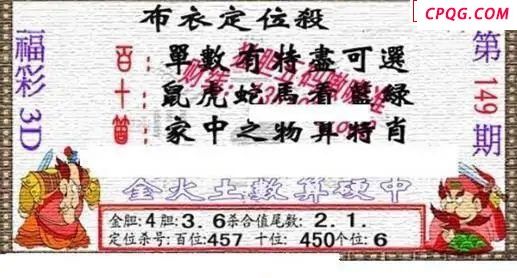 CPQG.COM
布衣定位殺
福彩3D
第149期
百：單數有特盡可選
十：鼠虎蛇馬看藍綠
個：家中之物算特肖
金火土數算硬中
金胆:4胆:3.6杀合值尾数:2.1.
定位杀号:百位:457 十位:450个位:6